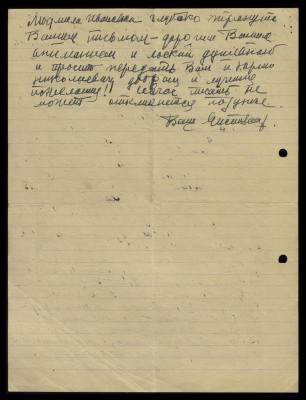 Людмила Ивановна глубоко тронута
Вашим письмом – дорогим Вашим
вниманием и лаской душевной
и просит передать Вам и Карлу
Николаевичу и лучшие
пожелания, сейчас писать не
может откликнется позднее.
Ваш